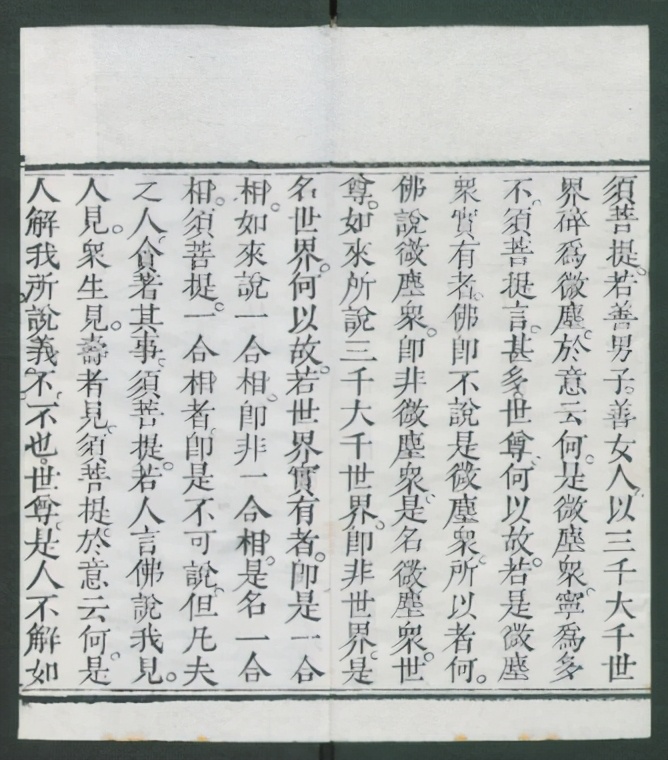 須菩提。若善男子。善女人。以三千大千世
界碎爲微塵。於意云何。是微塵衆。寧爲多
不。須菩提言。甚多。世尊。何以故。若是微塵
衆實有者。佛卽不說是微塵衆。所以者何。
佛說微塵衆。卽非微塵衆。是名微塵衆。世
尊。如來所說三千大千世界。卽非世界。是
名世界。何以故。若世界實有者。卽是一合
相。如來說一合相。卽非一合相。是名一合
相。須菩提。一合相者。卽是不可說。但凡夫
之人。貪著其事。須菩提。若人言佛說我見。
人見。衆生見。壽者見。須菩提。於意云何。是
人解我所說義。不。不也。世尊。是人不解如